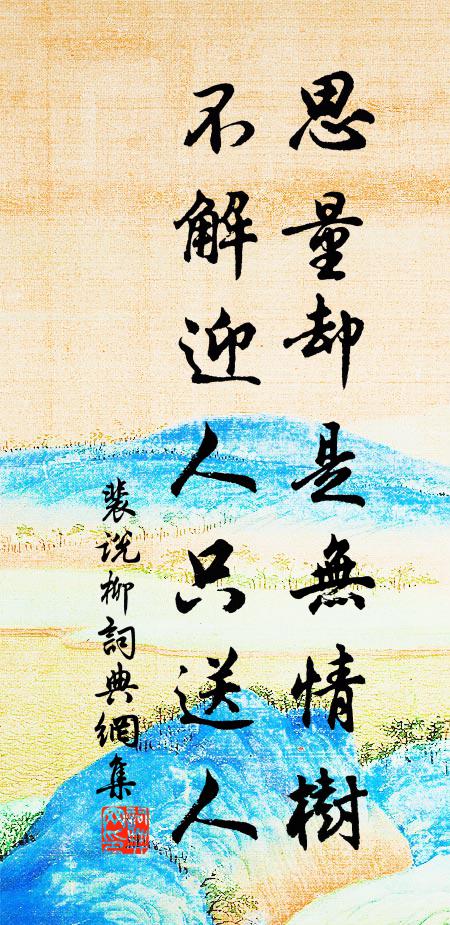 思量却是無情樹
不解迎人只送人
裴説柳詞典網集